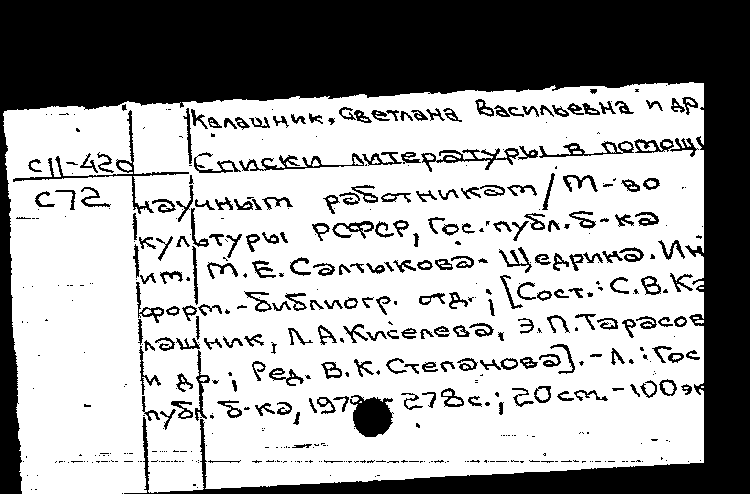 Калашник, Светлана Васильевна и др.
С11-420 Списки литературы в помощь
С72 научным работникам / М-во
культуры РСФСР, Гос. публ. б-ка
им. М.Е. Салтыкова-Щедрина. Ин
форм.-библиогр. отд.; [Сост.: С.В. Ка
лашник, Л.А. Киселева, Э.П. Тарасов
и др.; Ред. В.К. Степанова]. - Л.: Гос
публ. б-ка, 1979. - 278 с.; 20 см. - 100 эк